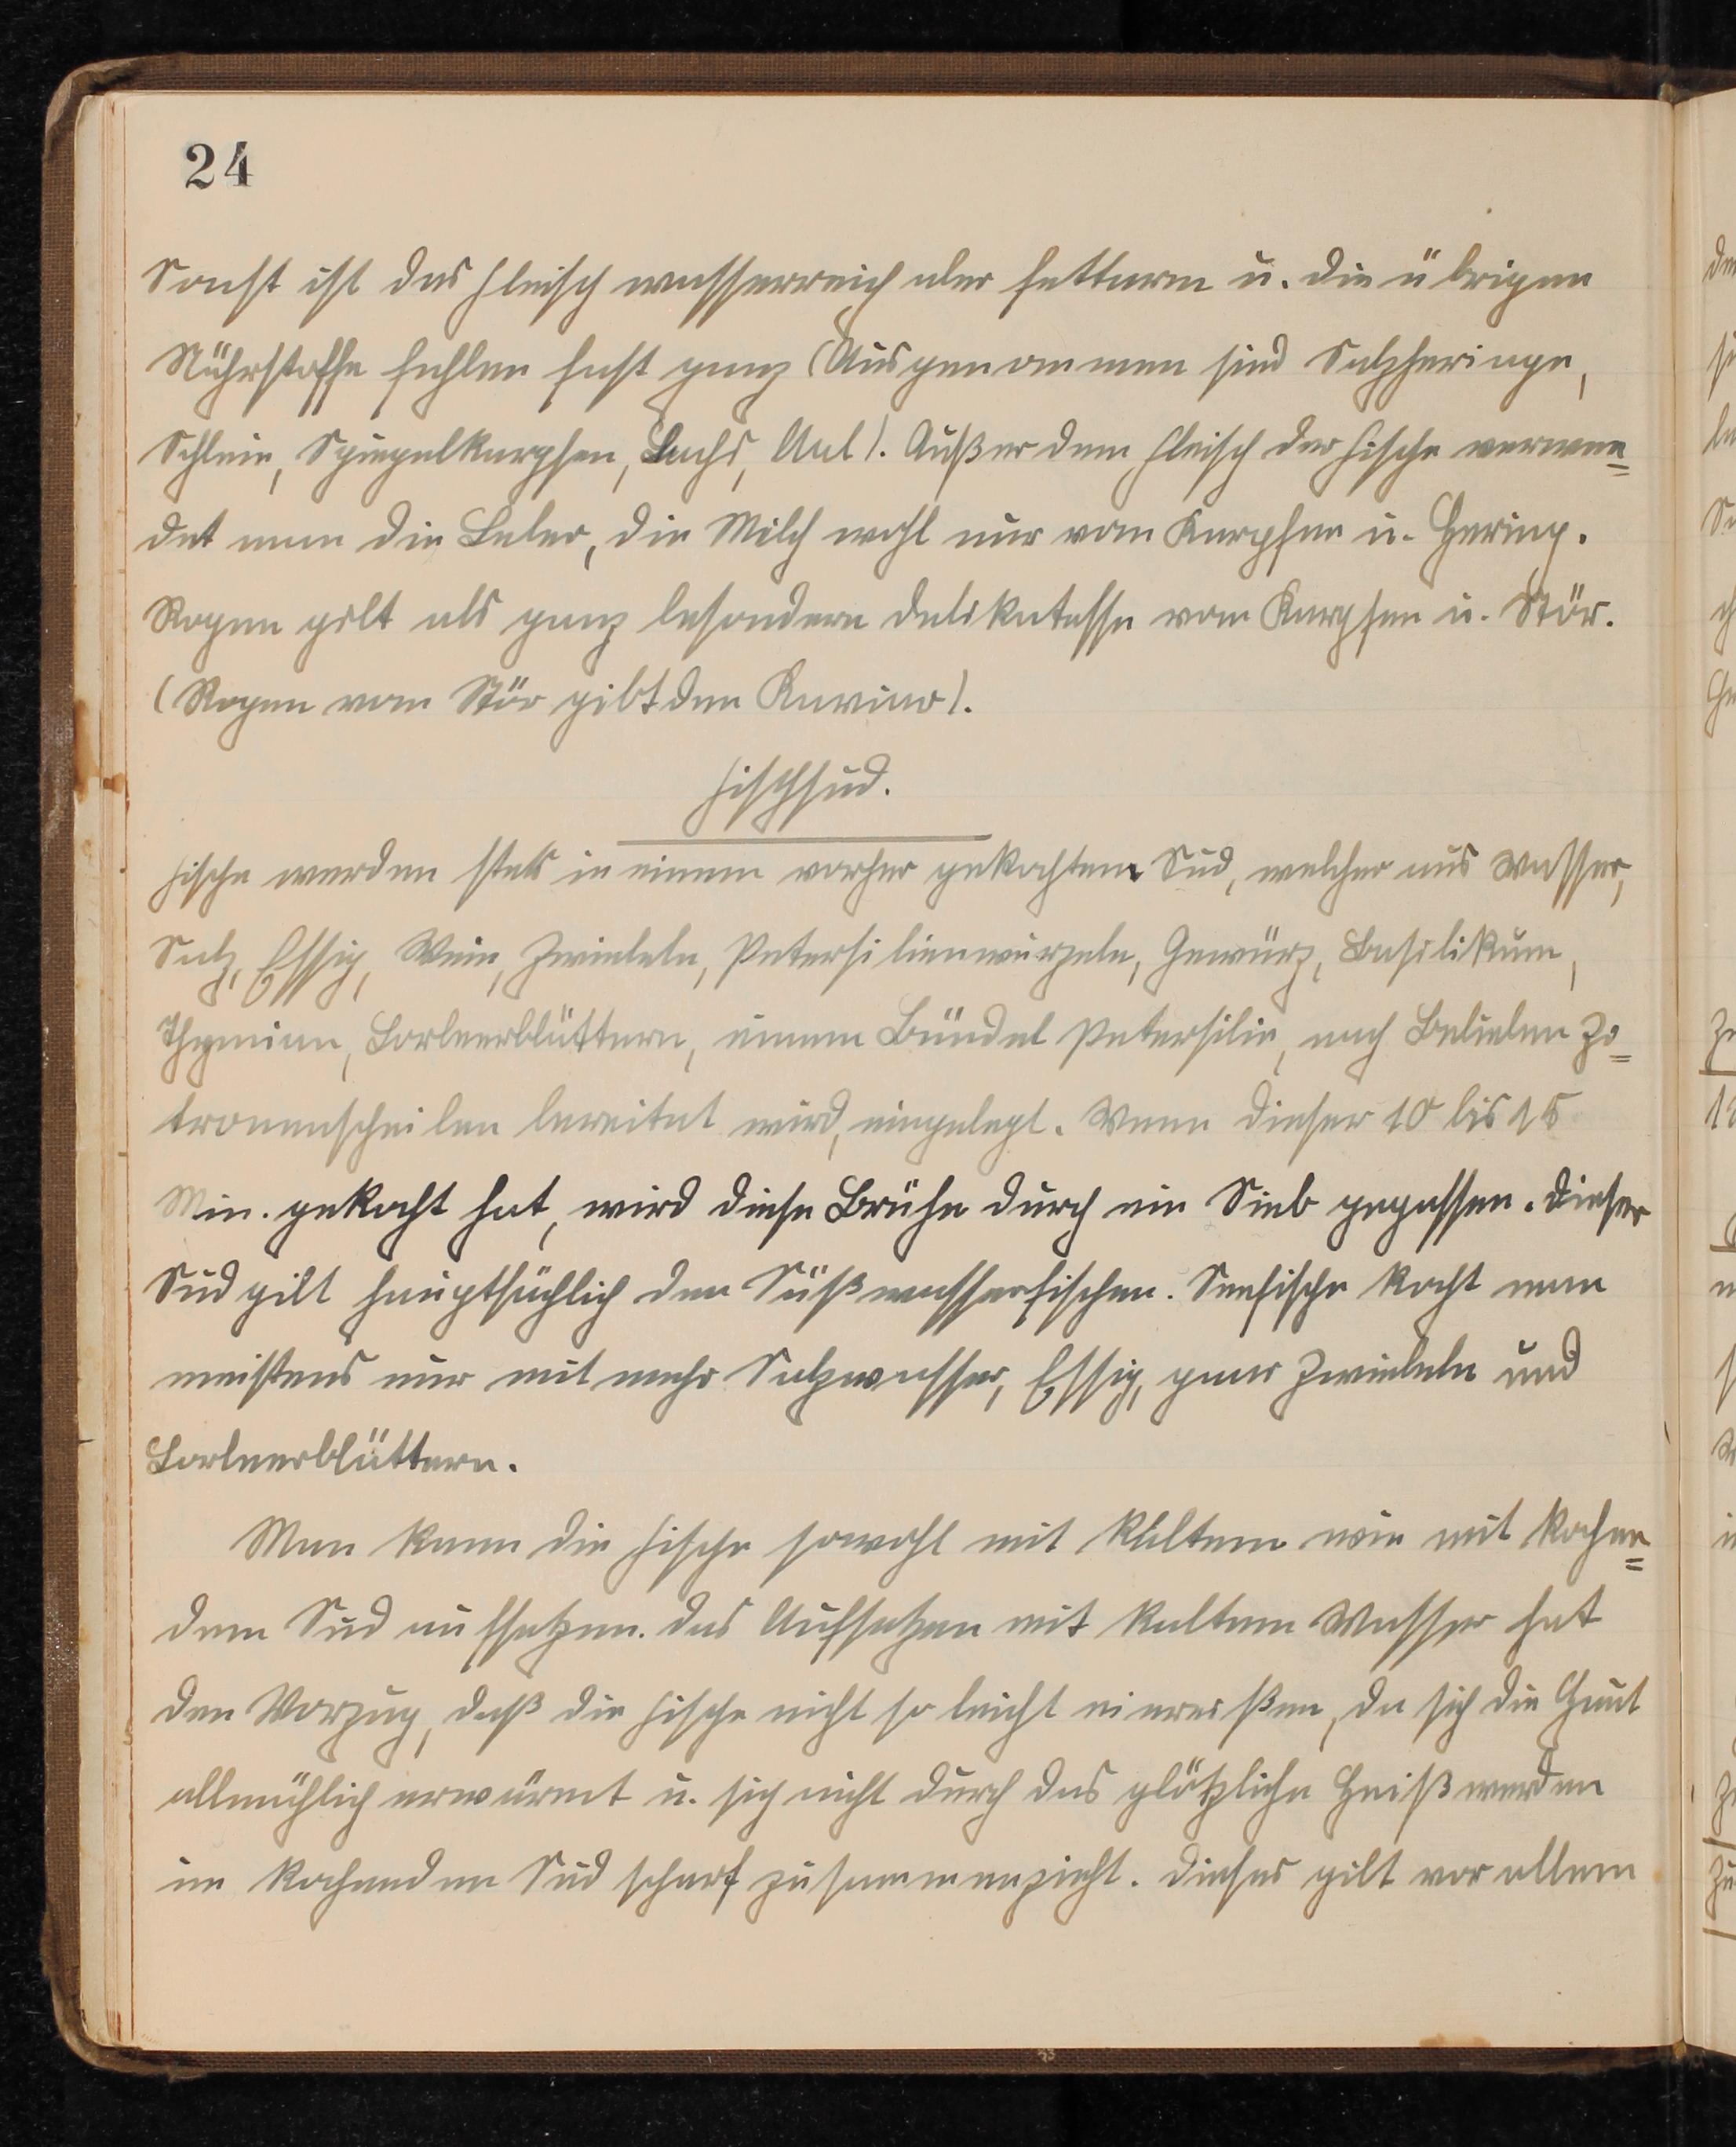 24
Sonst ist das Fleisch wasserreich aber fettarm u. die übrigen
Nährstoffe fehlen fast ganz (Ausgenommen sind Salzheringe,
Schleie, Spiegelkarpfen, Lachs, Aal). Außer dem Fleisch der Fische verwen=
det man die Leber, die Milch wohl nur vom Karpfen u. Hering.
Rogen gilt als ganz besondere Delikatesse vom Karpfen u. Stör.
(Rogen vom Stör gibt den Kaviar).
Fischsud.
Fische werden stets in einem vorher gekochten Sud, welcher aus Wasser,
Salz, Essig, Wein, Zwiebeln, Petersilienwurzeln, Gewürz, Basilikum,
Thymian, Lorbeerblättern, einem Bündel Petersilie, nach Belieben Zi=
tronenscheiben bereitet wird, eingelegt. Wenn dieser 10 bis 15
Min. gekocht hat, wird diese Brühe durch ein Sieb gegossen. Dieser
Sud gilt hauptsächlich den Süßwasserfischen. Seefische kocht man
meistens nur mit mehr Salzwasser, Essig, paar Zwiebeln und
Lorbeerblättern.
Man kann die Fische sowohl mit kaltem wie mit kochen=
dem Sud aufsetzen. Das Aufsetzen mit kaltem Wasser hat
den Vorzug, daß die Fische nicht so leicht einreißen, da sich die Haut
allmählich erwärmt u. sich nicht durch das plötzliche Heißwerden
im kochenden Sud scharf zusammenzieht. Dieses gilt vor allem